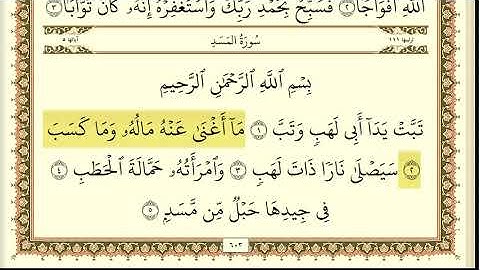 ٱللَّهِ أَفْوَاجًا ٢ فَسَبِّحْ بِحَمْدِ رَبِّكَ وَٱسْتَغْفِرْهُ إِنَّهُۥ كَانَ تَوَّابًۢا ٣
ترتيبها ١١١ سُورَةُ المَسَدِ آياتها ٥
بِسْمِ ٱللَّهِ ٱلرَّحْمَٰنِ ٱلرَّحِيمِ
تَبَّتْ يَدَآ أَبِى لَهَبٍ وَتَبَّ ١ مَآ أَغْنَىٰ عَنْهُ مَالُهُۥ وَمَا كَسَبَ
٢ سَيَصْلَىٰ نَارًا ذَاتَ لَهَبٍ ٣ وَٱمْرَأَتُهُۥ حَمَّالَةَ ٱلْحَطَبِ ٤
فِى جِيدِهَا حَبْلٌ مِّن مَّسَدٍۭ ٥
٦٠٣